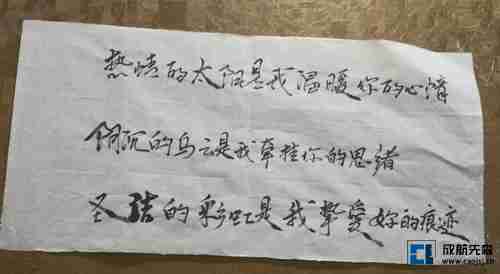 热情的太阳是我温暖你的心情
低沉的乌云是我牵挂你的思绪
圣洁的彩虹是我挚爱妳的痕迹
成航先森